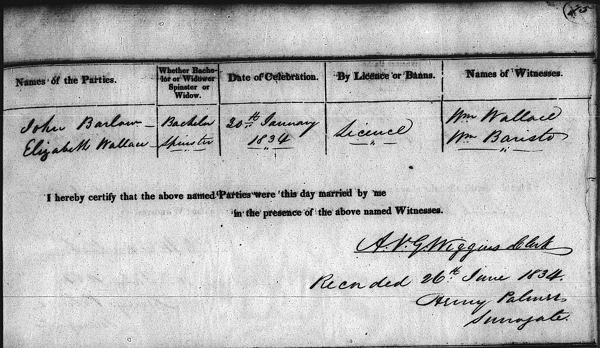 Names of the Parties.
Whether Bache-
lor or Widower
Spinster or
Widow.
Date of Celebration.
By Licence or Banns.
Names of Witnesses.
John Barlow
Elizabeth Wallace
Bachelor
Spinster
20th January
1834
Licence
Wm Wallace
Wm Baristo
I hereby certify that the above named Parties were this day married by me
in the presence of the above named Witnesses.
A. V. G. Wiggins Clerk
Recorded 26th June 1834.
Henry Palmer
Surrogate.